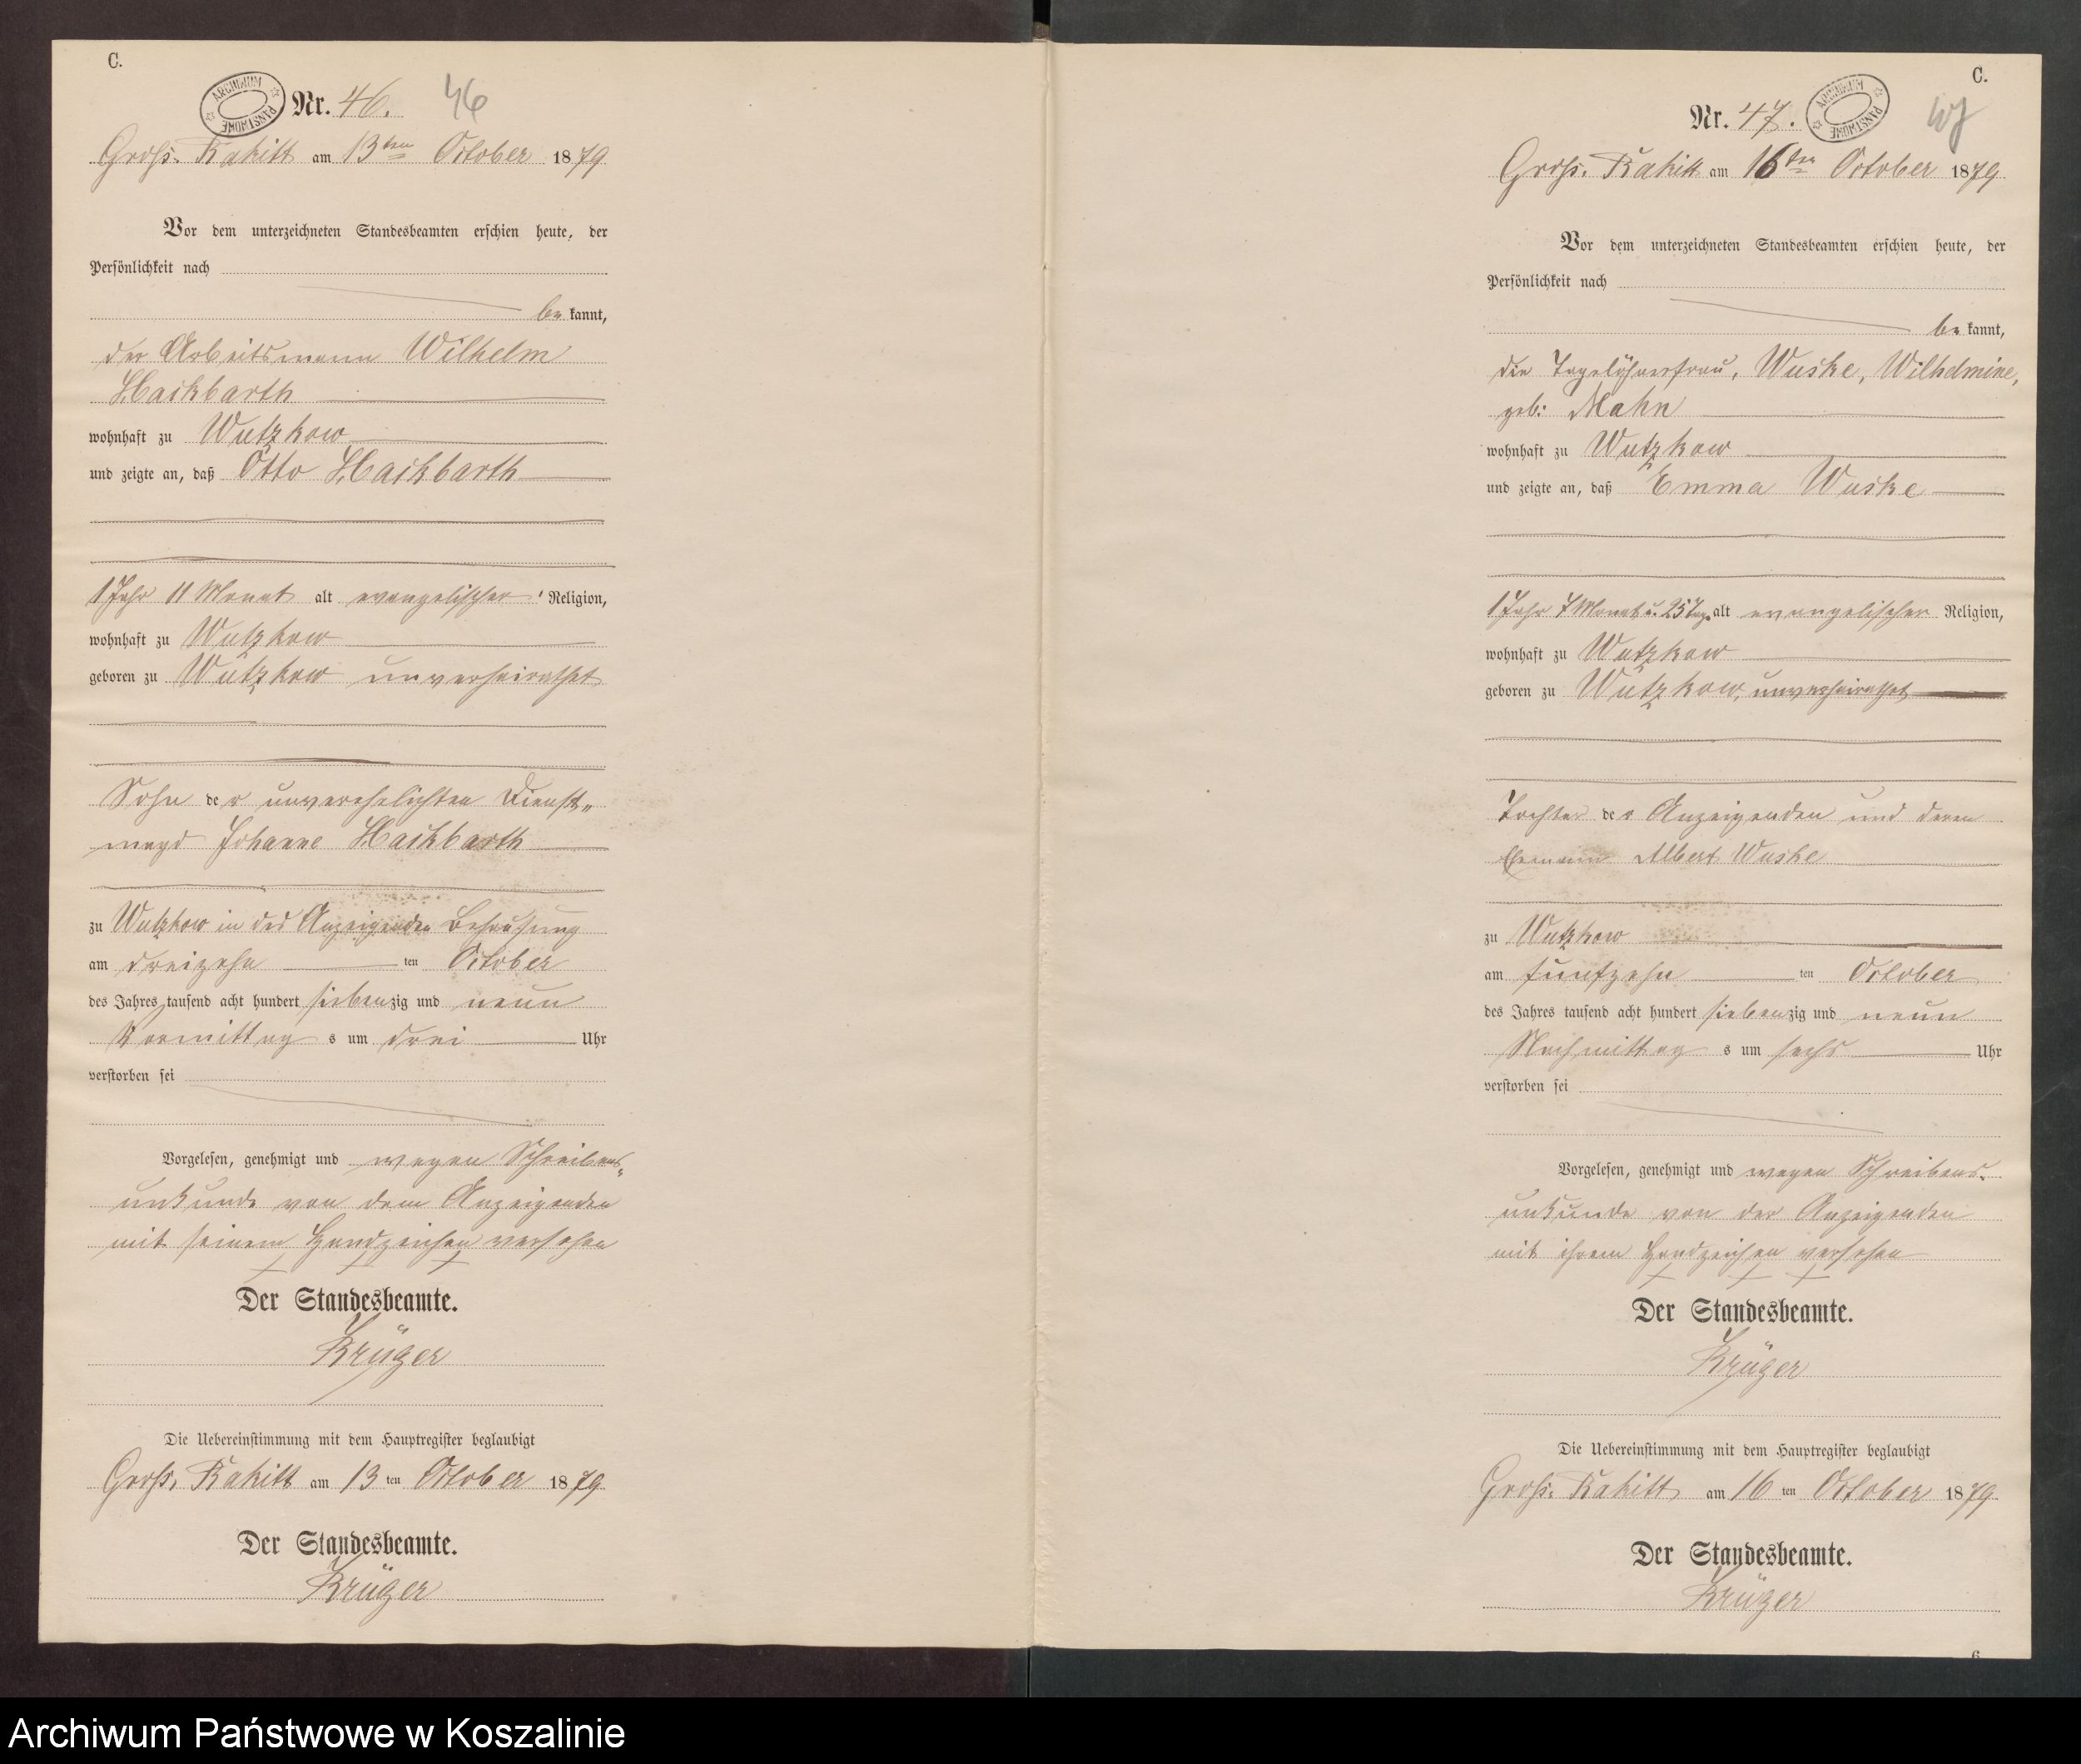 C.
ARCHIWUM PAŃSTWOWE
Nr. 46. 46
Groß. Rakitt am 13ten October 1879
Vor dem unterzeichneten Standesbeamten erschien heute, der
Persönlichkeit nach
be kannt,
der Arbeitsmann Wilhelm
Hackbarth
wohnhaft zu Wutzkow
und zeigte an, daß Otto Hackbarth
1 Jahr 11 Monat alt evangelischer Religion,
wohnhaft zu Wutzkow
geboren zu Wutzkow unverheirathet
Sohn der unverehelichten Dienst„
magd Johanne Hackbarth
zu Wutzkow in des Anzeigenden Behausung
am dreizehn ten October
des Jahres tausend acht hundert siebenzig und neun
Vormittag s um drei Uhr
verstorben sei
Vorgelesen, genehmigt und wegen Schreibens„
unkunde von dem Anzeigenden
mit seinem Handzeichen versehen
+ + +
Der Standesbeamte.
Krüger
Die Uebereinstimmung mit dem Hauptregister beglaubigt
Groß. Rakitt am 13 ten October 1879
Der Standesbeamte.
Krüger
C.
ARCHIWUM PAŃSTWOWE
Nr. 47. 47
Groß. Rakitt am 16ten October 1879
Vor dem unterzeichneten Standesbeamten erschien heute, der
Persönlichkeit nach
be kannt,
die Tagelöhnerfrau, Wuske, Wilhelmine,
geb: Mahn
wohnhaft zu Wutzkow
und zeigte an, daß Emma Wuske
1 Jahr 7 Monat u. 25 Tage alt evangelischer Religion,
wohnhaft zu Wutzkow
geboren zu Wutzkow, unverheirathet
Tochter der Anzeigenden und deren
Ehemann Albert Wuske
zu Wutzkow
am fünfzehn ten October
des Jahres tausend acht hundert siebenzig und neun
Nachmittag s um sechs Uhr
verstorben sei
Vorgelesen, genehmigt und wegen Schreibens-
unkunde von der Anzeigenden
mit ihrem Handzeichen versehen
+ + +
Der Standesbeamte.
Krüger
Die Uebereinstimmung mit dem Hauptregister beglaubigt
Groß. Rakitt am 16 ten October 1879
Der Standesbeamte.
Krüger
6
Archiwum Państwowe w Koszalinie